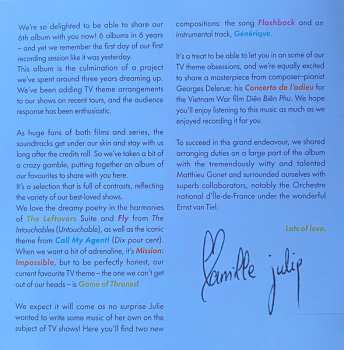 We're so delighted to be able to share our
6th album with you now! 6 albums in 6 years
– and yet we remember the first day of our first
recording session like it was yesterday.
This album is the culmination of a project
we've spent around three years dreaming up.
We've been adding TV theme arrangements
to our shows on recent tours, and the audience
response has been enthusiastic.
As huge fans of both films and series, the
soundtracks get under our skin and stay with us
long after the credits roll. So we've taken a bit of
a crazy gamble, putting together an album of
our favourites to share with you here.
It's a selection that is full of contrasts, reflecting
the variety of our best-loved shows.
We love the dreamy poetry in the harmonies
of The Leftovers Suite and Fly from The
Intouchables (Untouchable), as well as the iconic
theme from Call My Agent! (Dix pour cent).
When we want a bit of adrenaline, it's Mission:
Impossible, but to be perfectly honest, our
current favourite TV theme – the one we can't get
out of our heads – is Game of Thrones!
We expect it will come as no surprise Julie
wanted to write some music of her own on the
subject of TV shows! Here you'll find two new
compositions: the song Flashback and an
instrumental track, Générique.
It's a treat to be able to let you in on some of our
TV theme obsessions, and we're equally excited
to share a masterpiece from composer–pianist
Georges Delerue: his Concerto de l'adieu for
the Vietnam War film Diên Biên Phu. We hope
you'll enjoy listening to this music as much as we
enjoyed recording it for you.
To succeed in the grand endeavour, we shared
arranging duties on a large part of the album
with the tremendously witty and talented
Matthieu Gonet and surrounded ourselves with
superb collaborators, notably the Orchestre
national d'Île-de-France under the wonderful
Ernst van Tiel.
Lots of love,
Camille julie